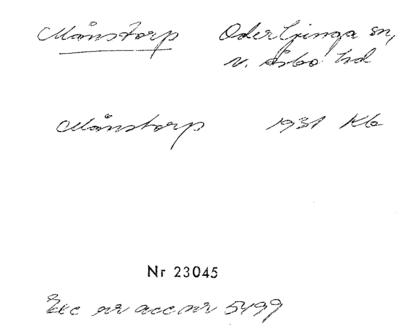 Månstorp Oderljunga sn,
N. Åsbo hd
Månstorp 1931 Kb
Nr 23045
Exc ur acc nr 5499